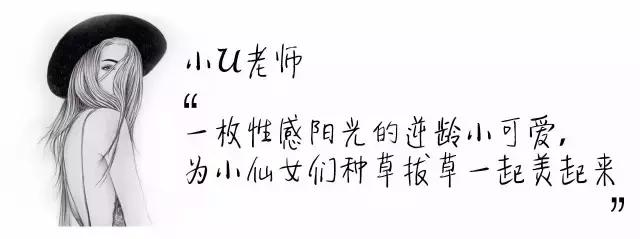 小U老师
“
一枚性感阳光的逆龄小可爱,
为小仙女们种草拔草一起美起来
”